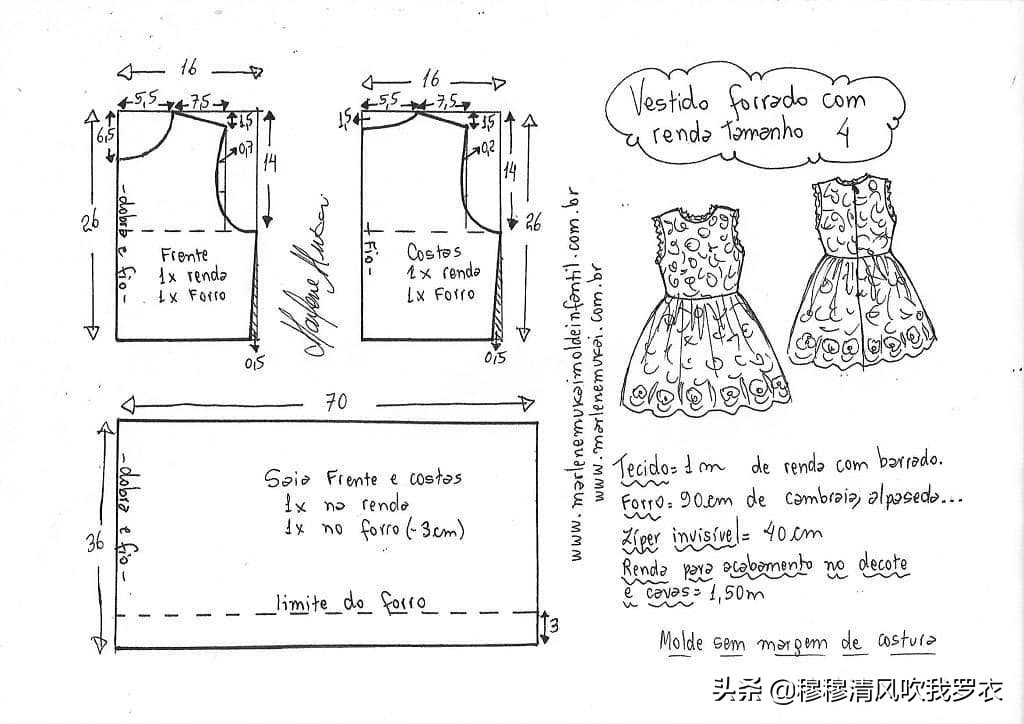 Vestido forrado com
renda Tamanho 4
16
5,5
7,5
6,5
1,5
0,7
14
26
- dobra e fio -
Frente
1x renda
1x Forro
0,5
Marlene Mukai
16
5,5
7,5
1,5
1,5
0,2
14
26
- Fio -
Costas
1x renda
1x Forro
0,5
70
36
- dobra e fio -
Saia Frente e costas
1x na renda
1x no forro (-3cm)
limite do forro
3
www.marlenemukaimoldeinfantil.com.br
www.marlenemukai.com.br
Tecido= 1m de renda com barrado.
Forro= 90cm de cambraia, alpaseda...
Zíper invisível= 40cm
Renda para acabamento no decote
e cavas= 1,50m
Molde sem margem de costura
头条 @穆穆清风吹我罗衣